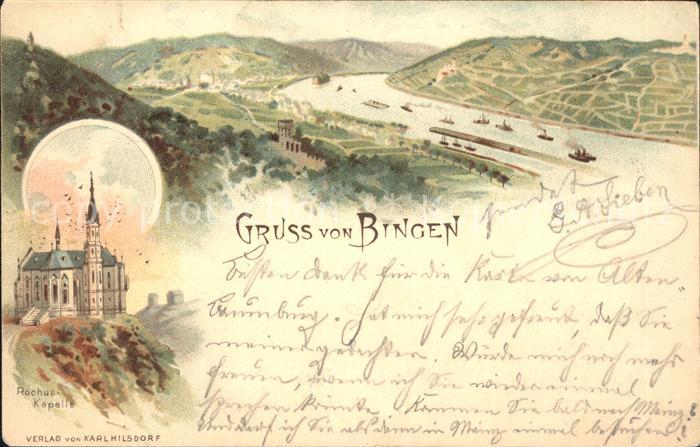 GRUSS VON BINGEN
sendet
G. A. Sieben
Besten Dank für die Karte von Alten-
Baumburg. Hat mich sehr gefreut, daß Sie
meiner gedachten. Würde mich noch mehr
freuen, wenn ich Sie wieder einmal
sprechen könnte. Kommen Sie bald nach Mainz &
und darf ich Sie alsdann in Mainz einmal besuchen?
Rochus-
Kapelle
VERLAG VON KARL HILSDORF